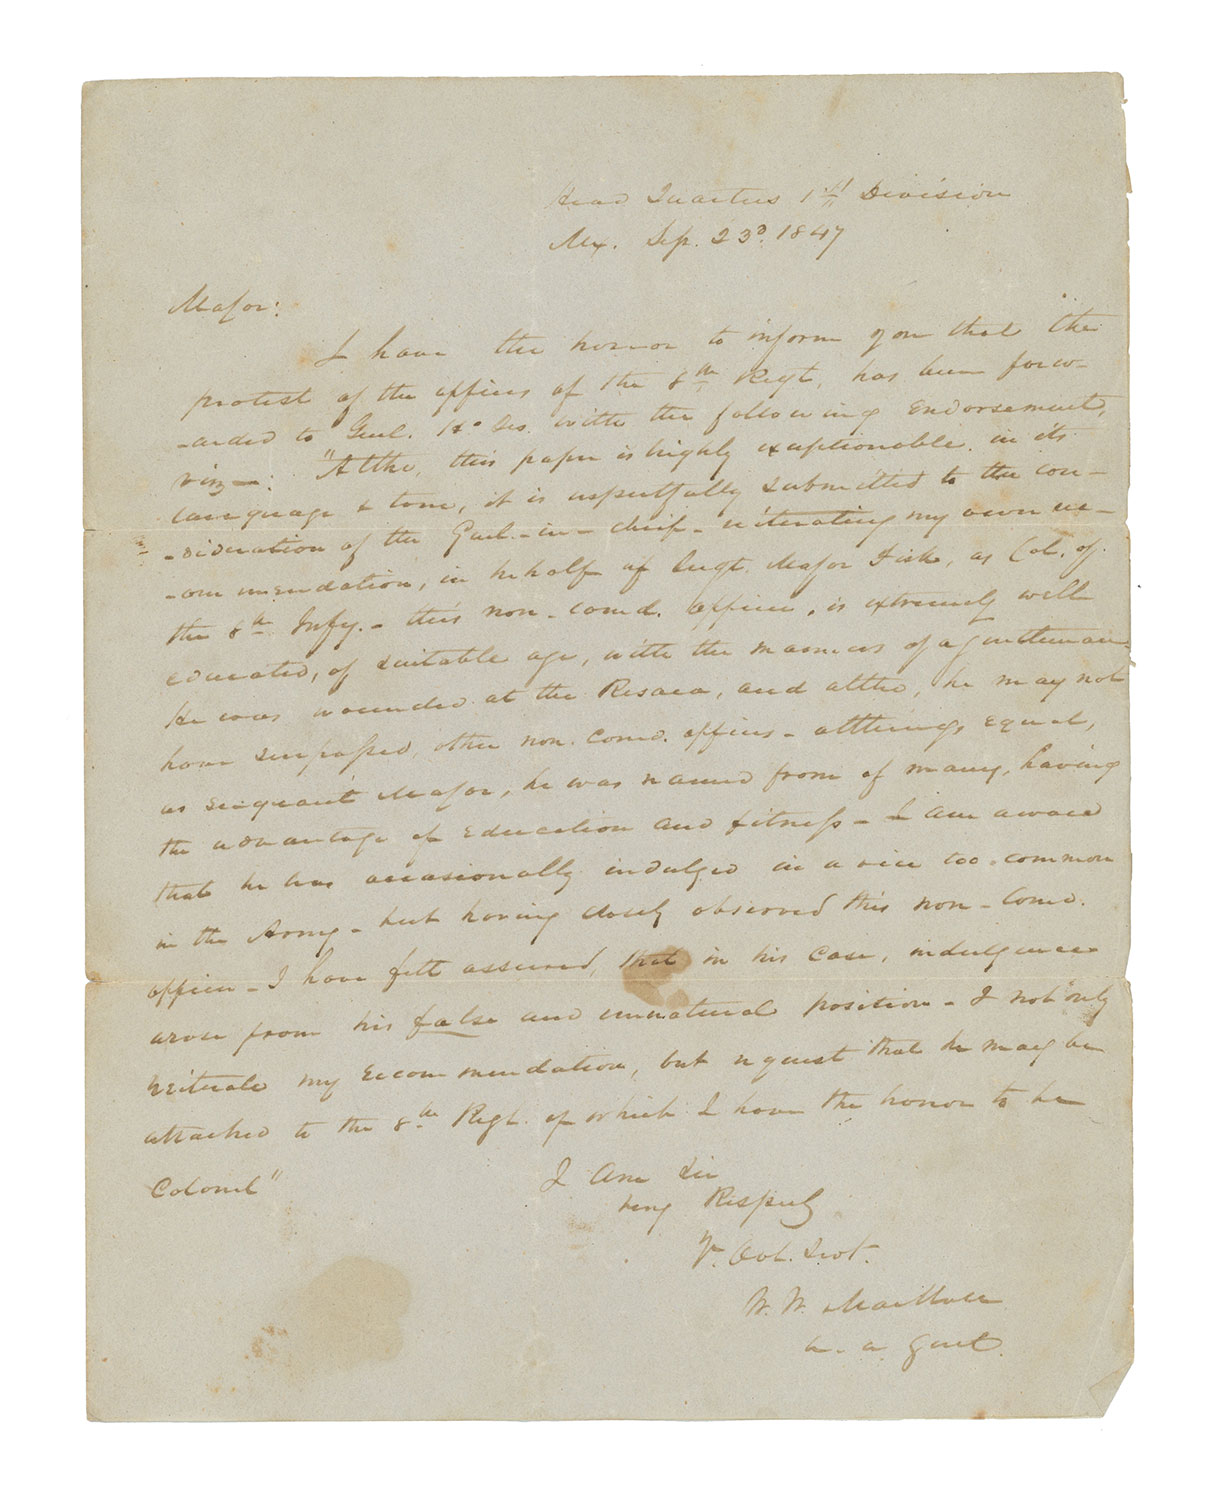 Head Quarters 1st Division
Mex. Sep. 23d. 1847
Major:
I have the honor to inform you that the
protest of the officers of the 8th Regt. has been forw-
-arded to Genl. Hd. Qrs. with the following endorsement,
viz—: "Altho, this paper is highly exceptionable in its
language & tone, it is respectfully submitted to the con-
-sideration of the Genl.-in-chief- reiterating my own rec-
-ommendation, in behalf of Sergt. Major Fink, as Col. of
the 8th Infy. - this non-comd. officer, is extremely well
educated, of suitable age, with the manners of a gentleman
He was wounded at the Resaca, and altho, he may not
have surpassed other non. comd. officers - all things equal,
as sergeant Major, he was named from of many, having
the advantage of education and fitness - I am aware
that he has occasionally indulged in a vice too common
in the Army - but having closely observed this non-comd.
officer - I have felt assured, that in his case, indulgence
arose from his false and unnatural position - I not only
reiterate my recommendation, but request that he may be
attached to the 8th Regt. of which I have the honor to be
Colonel"
I am Sir
very Respecly
Yr. Obt. Svt.
W. W. Mackall
a. a. Genl.